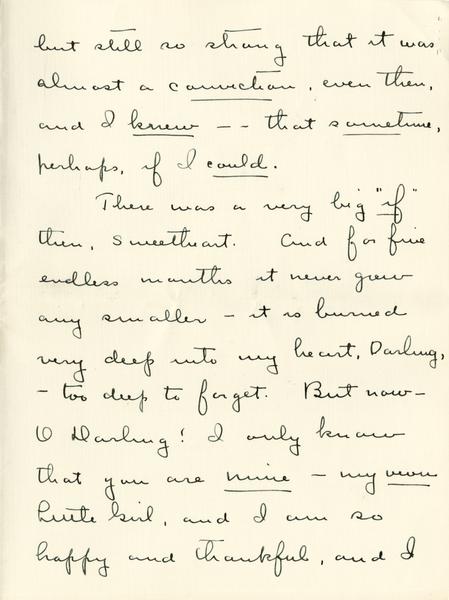 but still so strong that it was
almost a conviction, even then,
and I knew -- that sometime,
perhaps, if I could.
There was a very big "if"
then, Sweetheart. And for five
endless months it never grew
any smaller - it is burned
very deep into my heart, Darling,
- too deep to forget. But now -
O Darling! I only know
that you are mine - my own
Little Girl, and I am so
happy and thankful, and I